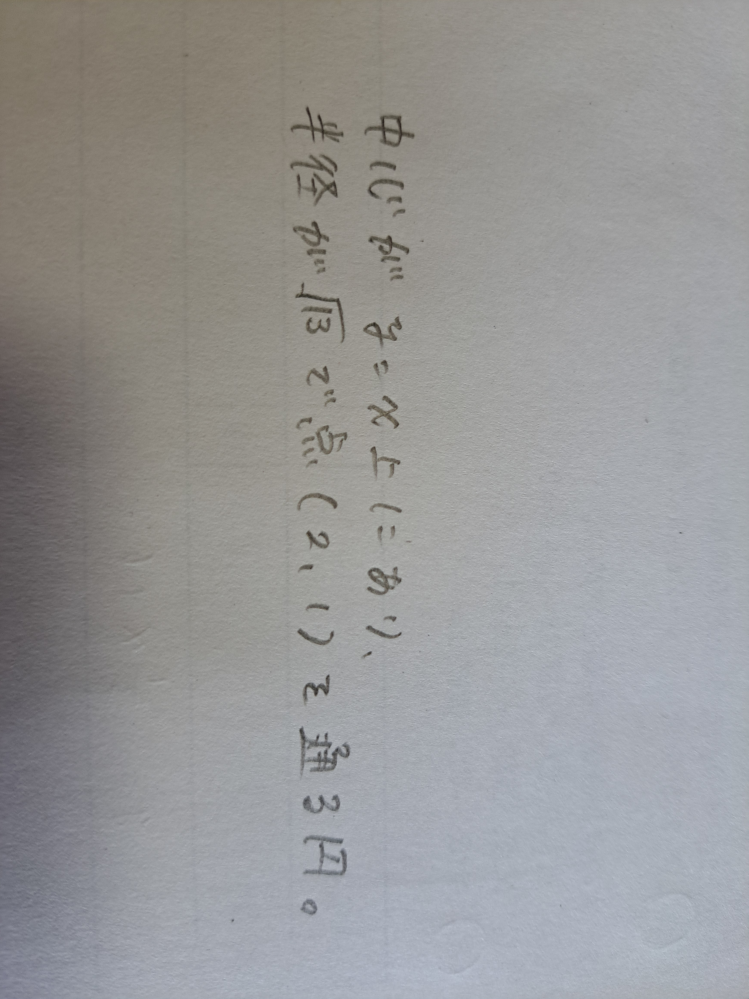 中心が y=x上にあり、
半径が√13で点(2,1)を通る円。